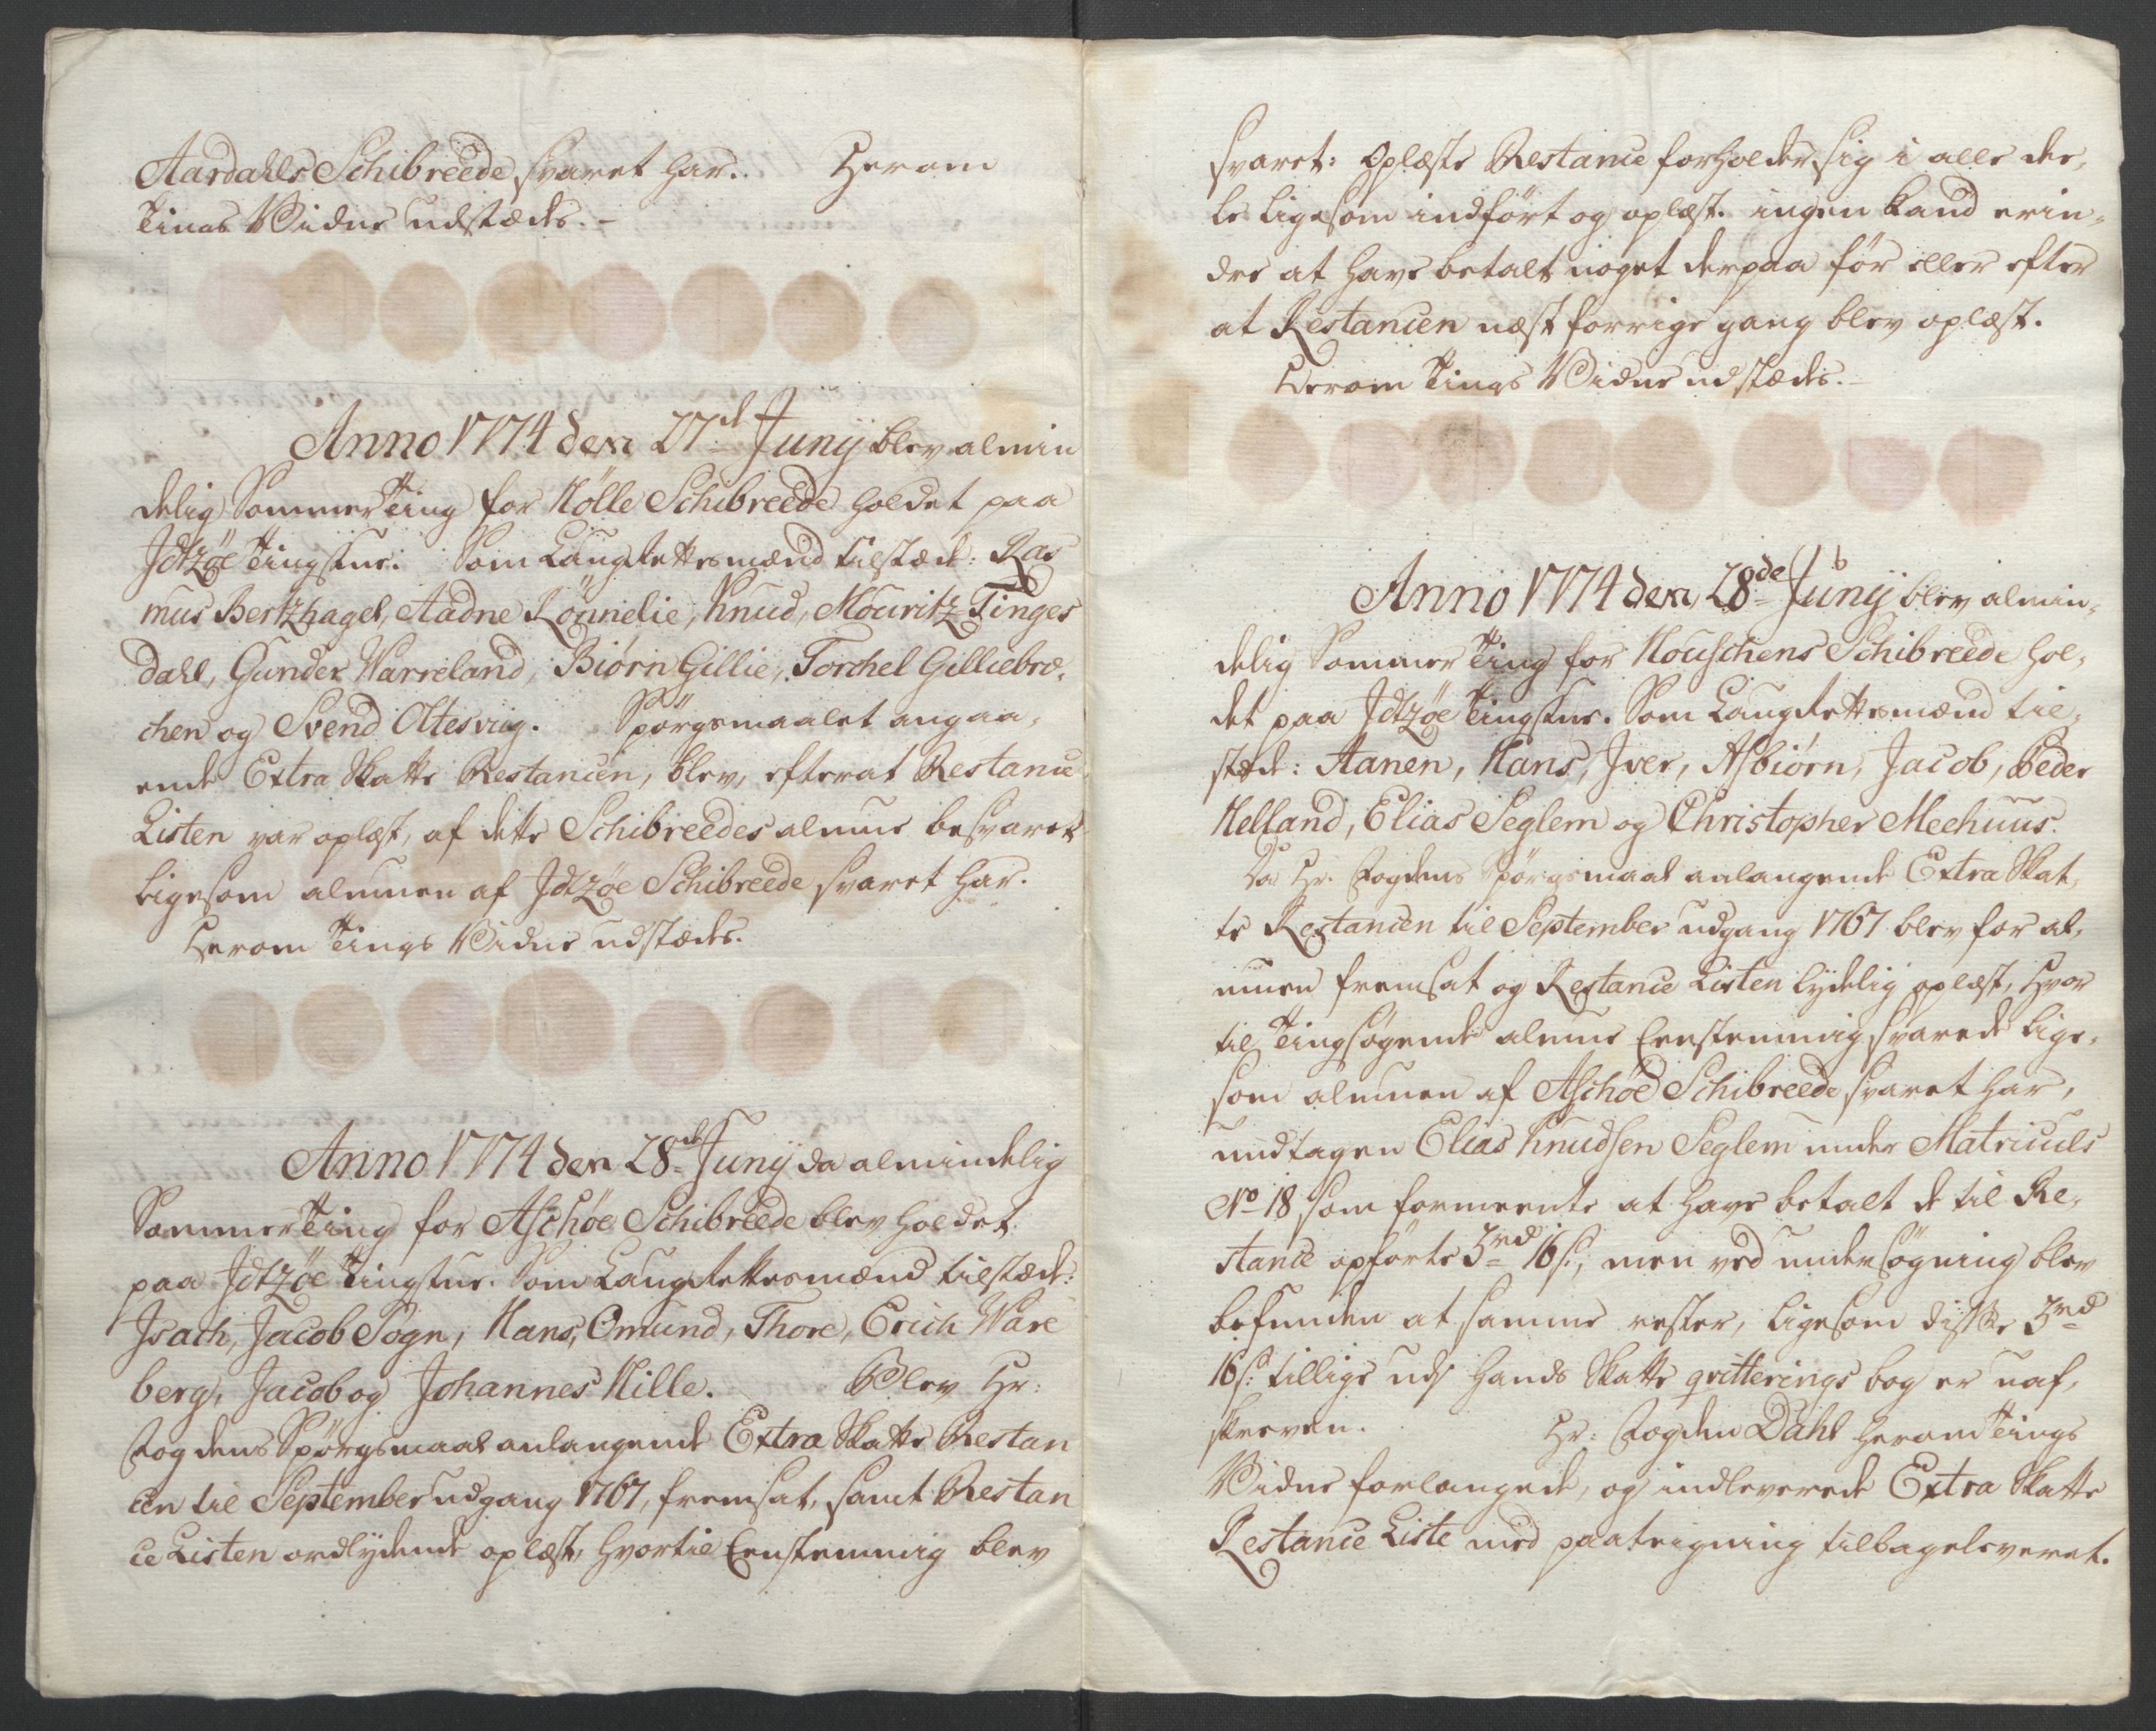 Aardahls Schibreede svaret har. Herom
Tings Vidne udstædes.
Anno 1774 den 27d Junij blev almin
delig Sommer Ting for Hölle Schibreede holdet paa
Idtzöe Tingstue. Som Laugrettesmænd tilstæde: Ras
mus Bertzhagel, Aadne Rönnelie, Knud, Mouritz Tinges
dahl, Gunder Warreland, Biörn Gillie, Torchel Gilliebræ,
chen og Svend Oltesviig. Spörgsmaalet angaa,
ende Extra Skatte Restancen, blev, efterat Restance
Listen var oplæst, af dette Schibreedes almue besvaret
ligesom almuen af Idtzöe Schibreede svaret har.
Herom Tings Vidne udstædes.
Anno 1774 den 28de Junij da almindelig
Sommer Ting for Aschöe Schibreede blev holdet
paa Idtzöe Tingstue. Som Laugrettesmænd tilstæde:
Isach, Jacob Sogn, Hans, Omund, Thore, Erich Ware
berg, Jacob og Johannes Hille. Blev Hr:
Fogdens Spörgsmaal anlangende Extra Skatte Restan
cen til September udgang 1767, fremsat, samt Restan
ce Listen ordlydende oplæst, hvortil Eenstemmig blev
svaret: Oplæste Restance forholder sig i alle dee,
le ligesom indfört og oplæst. ingen kand erin,
dre at have betalt noget derpaa för eller efter
at Restancen næst forrige gang blev oplæst.
Herom Tings Vidne udstædes.
Anno 1774 den 28de Junij blev almin,
delig Sommer Ting for Houschens Schibreede hol,
det paa Idtzöe Tingstue. Som Laugrettesmænd til,
stæde: Aanen, Hans, Iver, Asbiörn, Jacob, Peder
Helland, Elias Seglem og Christopher Meehuus.
Da Hr. Fogdens Spörgsmaal anlangende Extra Skat,
te Restancen til September udgang 1767 blev for al,
muen fremsat og Restance Listen lydelig oplæst, hvor
til Tingsögende almue Eenstemmig svarede lige,
som almuen af Aschöe Schibreede svaret har,
undtagen Elias Knudsen Seglem under Matriculs
No 18 som formeente at have betalt de til Re,
stance opförte 3rd 16s:, men ved undersögning blev
befunden at samme rester, ligesom disse 3rd
16s: tillige udj hands Skatte qvitterings bog er uaf,
skreven. Hr: Fogden Dahl herom Tings
Vidne forlangede, og indleverede Extra Skatte
Restance Liste med paategning tilbageleveret.